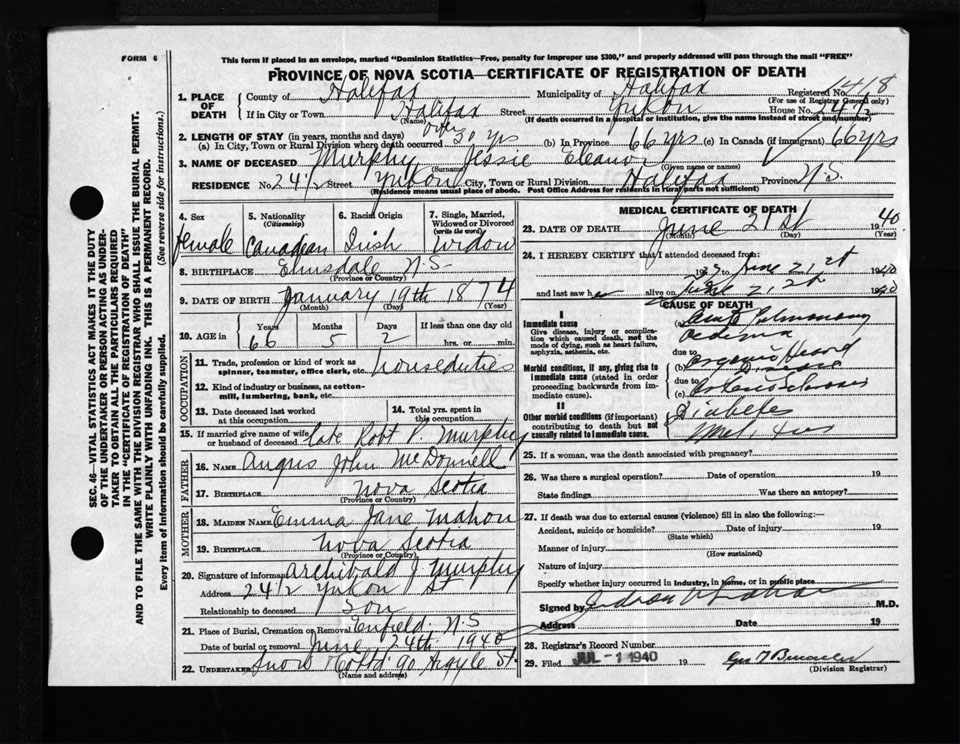 FORM 6
This form if placed in an envelope, marked "Dominion Statistics—Free, penalty for improper use $300," and properly addressed will pass through the mail "FREE"
PROVINCE OF NOVA SCOTIA—CERTIFICATE OF REGISTRATION OF DEATH
SEC. 46—VITAL STATISTICS ACT MAKES IT THE DUTY
OF THE UNDERTAKER OR PERSON ACTING AS UNDER-
TAKER TO OBTAIN ALL THE PARTICULARS REQUIRED
IN THE "CERTIFICATE OF REGISTRATION OF DEATH"
AND TO FILE THE SAME WITH THE DIVISION REGISTRAR WHO SHALL ISSUE THE BURIAL PERMIT.
WRITE PLAINLY WITH UNFADING INK. THIS IS A PERMANENT RECORD.
Every item of information should be carefully supplied. (See reverse side for instructions.)
1. PLACE OF DEATH
County of Halifax Municipality of Halifax Registered No. 1418
(For use of Registrar General only)
If in City or Town Halifax Street Yukon House No. 24½
(Name) (If death occurred in a hospital or institution, give the name instead of street and number)
2. LENGTH OF STAY (in years, months and days)
(a) In City, Town or Rural Division where death occurred over 30 yrs (b) In Province 66 yrs (c) In Canada (if immigrant) 66 yrs
3. NAME OF DECEASED Murphy Jessie Eleanor
(Surname) (Given name or names)
RESIDENCE No. 24½ Street Yukon City, Town or Rural Division Halifax Province N.S.
(Residence means usual place of abode. Post Office Address for residents in rural parts not sufficient)
4. Sex female
5. Nationality (Citizenship) Canadian
6. Racial Origin Irish
7. Single, Married, Widowed or Divorced (write the word) Widow
8. BIRTHPLACE Elmsdale N.S.
(Province or Country)
9. DATE OF BIRTH January 19th 1874
(Month) (Day) (Year)
10. AGE in Years 66 Months 5 Days 2 If less than one day old hrs. or min.
OCCUPATION
11. Trade, profession or kind of work as spinner, teamster, office clerk, etc. houseduties
12. Kind of industry or business, as cotton-mill, lumbering, bank, etc.
13. Date deceased last worked at this occupation
14. Total yrs. spent in this occupation
15. If married give name of wife or husband of deceased late Robt P. Murphy
FATHER
16. NAME Angus John McDonnell
17. BIRTHPLACE Nova Scotia
(Province or Country)
MOTHER
18. MAIDEN NAME Emma Jane Mahon
19. BIRTHPLACE Nova Scotia
(Province or Country)
20. Signature of informant Archibald J Murphy
Address 24½ Yukon St
Relationship to deceased Son
21. Place of Burial, Cremation or Removal Enfield N.S
Date of burial or removal June 24th 1940
22. UNDERTAKER Snow 90 Argyle St.
(Name and address)
MEDICAL CERTIFICATE OF DEATH
23. DATE OF DEATH June 21st 1940
(Month) (Day) (Year)
24. I HEREBY CERTIFY that I attended deceased from:
193 to June 21st 1940
and last saw her alive on June 21st 1940
CAUSE OF DEATH
I
Immediate cause
Give disease, injury or complication which caused death, not the mode of dying, such as heart failure, asphyxia, asthenia, etc.
(a) Acute Pulmonary
Oedema
due to
Morbid conditions, if any, giving rise to immediate cause (stated in order proceeding backwards from immediate cause).
(b) Organic Heart
Disease
due to
(c)
II
Other morbid conditions (if important) contributing to death but not causally related to immediate cause.
Diabetes
25. If a woman, was the death associated with pregnancy?
26. Was there a surgical operation? Date of operation 19
State findings Was there an autopsy?
27. If death was due to external causes (violence) fill in also the following:—
Accident, suicide or homicide? Date of injury 19
(State which)
Manner of injury
(How sustained)
Nature of injury
Specify whether injury occurred in industry, in home, or in public place
Signed by M.D.
Address Date 19
28. Registrar's Record Number
29. Filed JUL - 1 1940 19
(Division Registrar)